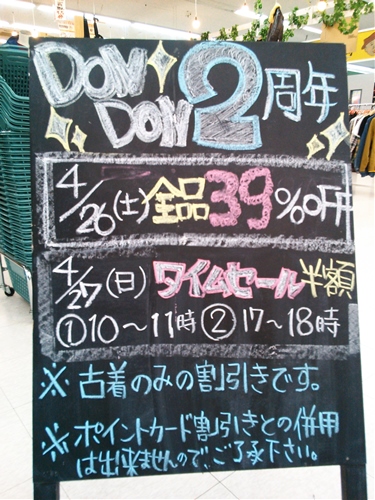 DON DON 2周年
4/26(土)全品39%OFF
4/27(日)タイムセール半額
①10〜11時②17〜18時
※古着のみの割引きです。
※ポイントカード割引きとの併用
は出来ませんので、ご了承下さい。